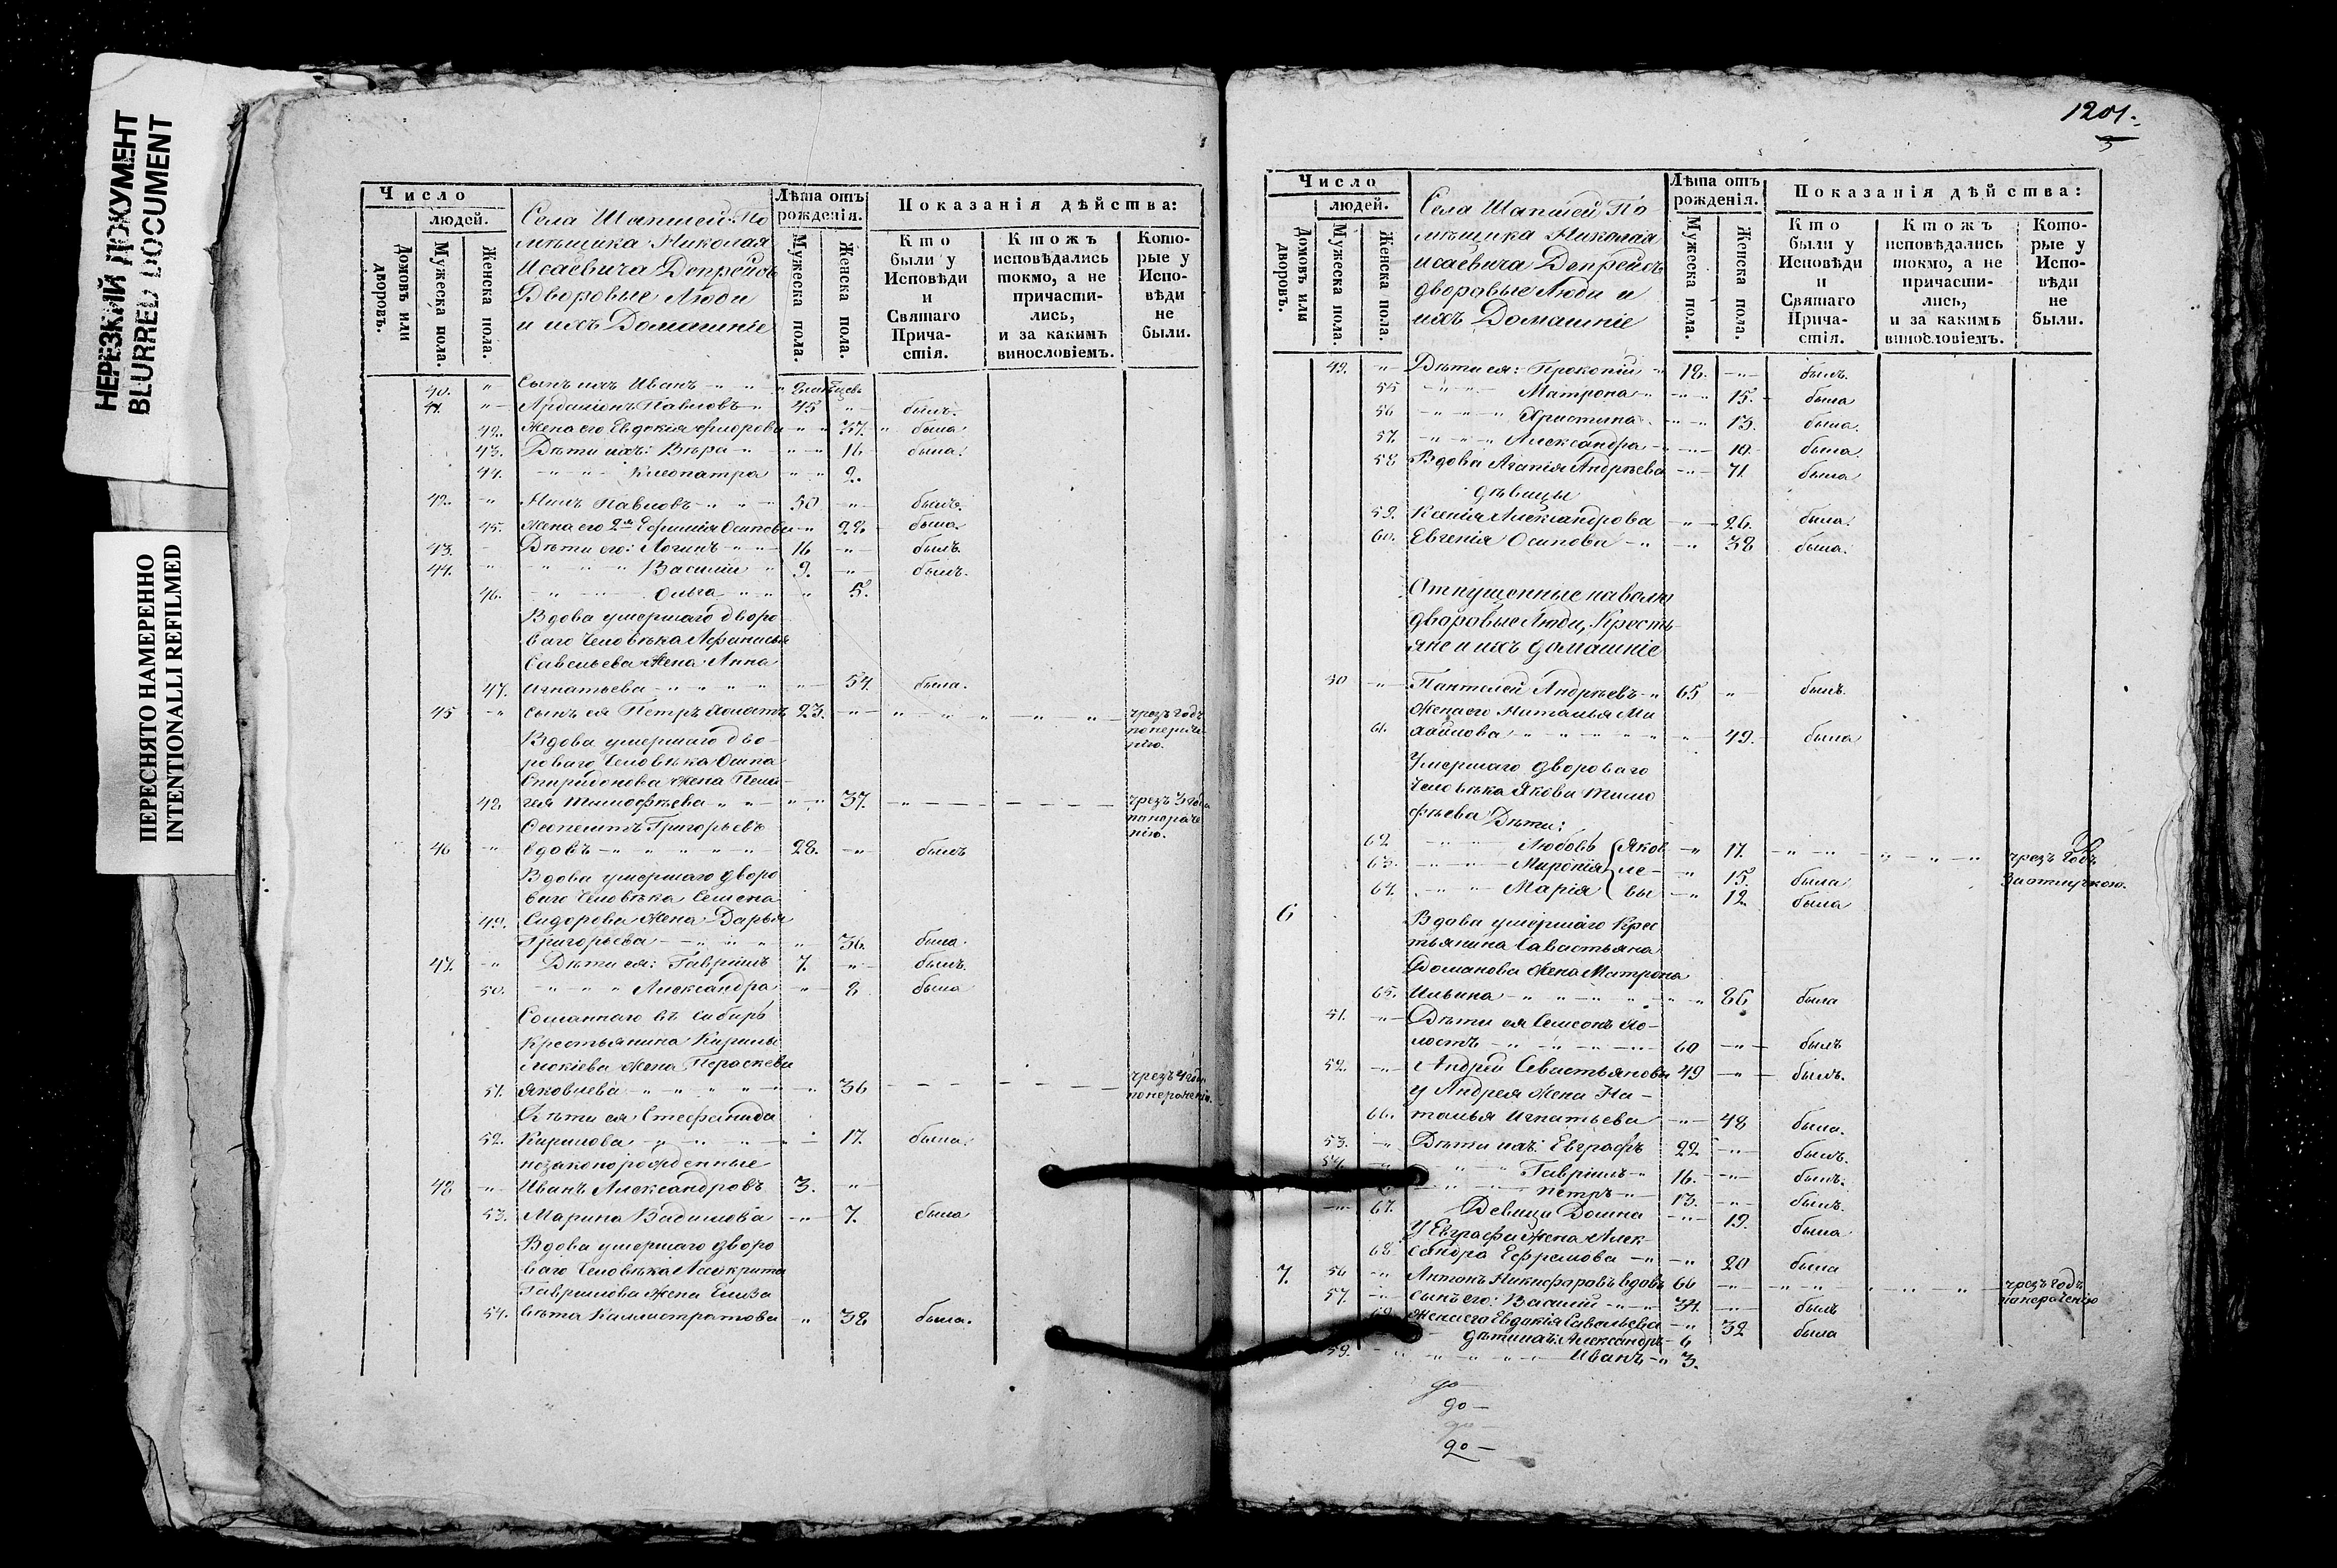 НЕРЕЗКИЙ ДОКУМЕНТ
BLURRED DOCUMENT
ПЕРЕСНЯТО НАМЕРЕННО
INTENTIONALLI REFILMED
Число
людей.
Домовъ или дворовъ.
Мужеска пола.
Женска пола.
Села Шапшей По
мѣщика Николая
Исаевича Депрейсъ
Дворовые Люди
и ихъ Домашніе
Лѣта отъ рожденія.
Мужеска пола.
Женска пола.
Показанія дѣйства:
Кто были у Исповѣди и Святаго Причастія.
Ктожъ исповѣдались токмо, а не причастились, и за какимъ винословіемъ.
Которые у Исповѣди не были.
40. " Сынъ ихъ Иванъ
41. " Павловъ 45 былъ.
42. Жена его Евдокія Флорова 37. была
43. Дѣти ихъ: Вѣра 16 была.
44. Клеопатра 2.
42. " Нилъ Павловъ 50 былъ.
45. Жена его 2я Осипова 28 была.
43. Дѣти его: Логинъ 16 былъ.
44. Василій 9. былъ.
46. Ольга 5.
Вдова умершаго дворо
ваго Человѣка Афанасья
Савельева Жена Анна
47. Игнатьева 54. была.
45 Сынъ ея Петръ Холостъ 23. чрезъ годъ
Вдова умершаго дво-
роваго Человѣка Осипа
Спиридонова Жена Пела-
48. гея Тимофѣева 37. чрезъ 3 года
Григорьевъ
46 вдовъ 28. былъ
Вдова умершаго дворо
ваго Человѣка Семена
49. Сидорова Жена Дарья
Григорьева 36. была.
47. Дѣти ея: Гавріилъ 7. былъ.
50. Александра 8 была
Сосланнаго въ Сибирь
Крестьянина Кирилы
Жена Пераскева
51. Яковлева 36 чрезъ 4 года
Дѣти ея Стефанида
52. Кирилова 17. была.
незаконорожденные
48 " Иванъ Александровъ 3.
53. Марина 7. была
Вдова умершаго дворо
ваго Человѣка
Гаврилова Жена Елиза
54. вѣта Каллистратова 38 была.
1201.
Число
людей.
Домовъ или дворовъ.
Мужеска пола.
Женска пола.
Села Шапшей По
мѣщика Николая
Исаевича Депрейсъ
дворовые Люди и
ихъ Домашніе
Лѣта отъ рожденія.
Мужеска пола.
Женска пола.
Показанія дѣйства:
Кто были у Исповѣди и Святаго Причастія.
Ктожъ исповѣдались токмо, а не причастились, и за какимъ винословіемъ.
Которые у Исповѣди не были.
49. Дѣти ея: Прокопій 18. былъ.
55 Матрона 15. была
56 Христина 13. была.
57. Александра 10. была.
58 Вдова Агапія Андрѣева 71 была
дѣвицы
59. Ксенія Александрова 26. была.
60. Евгенія Осипова 38 была.
Отпущенные наволю
дворовые Люди, Кресть-
яне и ихъ домашніе
50 Пантелей Андрѣевъ 65 былъ.
Жена его Наталья Ми
61. хайлова 49. была
Умершаго двороваго
Человѣка Якова Тимо
фѣева Дѣти:
62 Любовь Яков 17. чрезъ годъ
63. ле- 15. была
64. Марія вы 12. была
6 Вдова умершаго Крес
тьянина Савастьяна
Жена Матрона
65. Ильина 86 была
51. Дѣти ея Семенъ хо-
лостъ 60 былъ
52. Андрей Севастьяновъ 49 былъ.
у Андрея Жена На-
66. талья Игнатьева 48 была.
53. Дѣти ихъ: Евграфъ 22 былъ.
54. Гавріилъ 16. былъ.
Петръ 13. былъ.
67. Девица Домна 19. была
У Евграфа Жена Алек-
68 сандра Ефремова 20 была
7. 56 Антонъ Никифоровъ вдовъ 66 чрезъ годъ
57. Сынъ его: Василій 34. былъ
Жена его Евдокія Савельева 32 была
дѣти ихъ: Александръ 6
59. Иванъ 3.
до
до
до